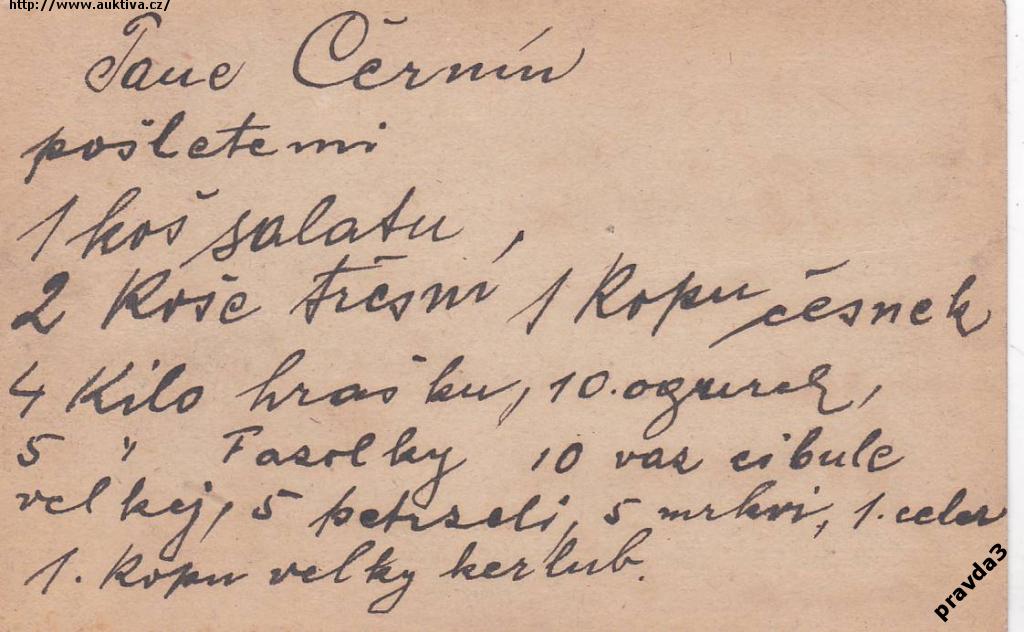 http://www.auktiva.cz/
Pane Černín
pošletemi
1 koš salatu,
2 Koše třešní 1 Kopu česnek
4 Kilo hrašku, 10. ogurek,
5 " Fazolky 10 vaz cibule
velkej, 5 petrzeli, 5 mrkvi, 1. celer
1. Kopu velky kerlub.
pravda3